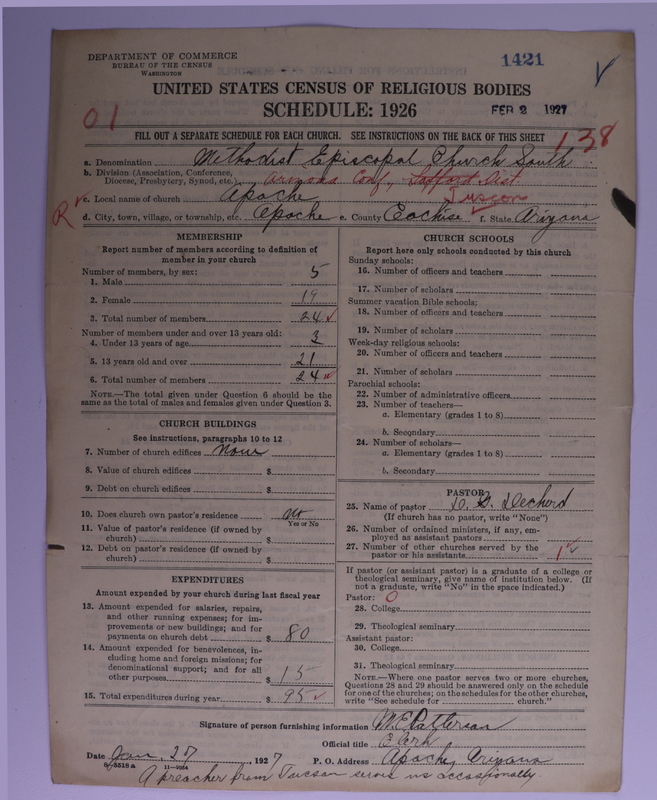 DEPARTMENT OF COMMERCE
BUREAU OF THE CENSUS
WASHINGTON
1421
UNITED STATES CENSUS OF RELIGIOUS BODIES
SCHEDULE: 1926
FEB 2 1927
01
FILL OUT A SEPARATE SCHEDULE FOR EACH CHURCH. SEE INSTRUCTIONS ON THE BACK OF THIS SHEET
138
a. Denomination Methodist Episcopal Church South
b. Division (Association, Conference,
Diocese, Presbytery, Synod, etc.) Arizona Conf, Safford Dist
Tucson
R c. Local name of church Apache
d. City, town, village, or township, etc. Apache e. County Cochise f. State Arizona
MEMBERSHIP
Report number of members according to definition of
member in your church
Number of members, by sex:
1. Male 5
2. Female 19
3. Total number of members 24
Number of members under and over 13 years old:
4. Under 13 years of age 3
5. 13 years old and over 21
6. Total number of members 24
NOTE.—The total given under Question 6 should be
same as the total of males and females given under Question 3.
CHURCH BUILDINGS
See instructions, paragraphs 10 to 12
7. Number of church edifices None
8. Value of church edifices $
9. Debt on church edifices $
10. Does church own pastor's residence no
Yes or No
11. Value of pastor's residence (if owned by
church) $
12. Debt on pastor's residence (if owned by
church) $
EXPENDITURES
Amount expended by your church during last fiscal year
13. Amount expended for salaries, repairs,
and other running expenses; for im-
provements or new buildings; and for
payments on church debt $ 80
14. Amount expended for benevolences, in-
cluding home and foreign missions; for
denominational support; and for all
other purposes $ 15
15. Total expenditures during year $ 95
CHURCH SCHOOLS
Report here only schools conducted by this church
Sunday schools:
16. Number of officers and teachers
17. Number of scholars
Summer vacation Bible schools:
18. Number of officers and teachers
19. Number of scholars
Week-day religious schools:
20. Number of officers and teachers
21. Number of scholars
Parochial schools:
22. Number of administrative officers
23. Number of teachers—
a. Elementary (grades 1 to 8)
b. Secondary
24. Number of scholars—
a. Elementary (grades 1 to 8)
b. Secondary
PASTOR
25. Name of pastor
(If church has no pastor, write "None")
26. Number of ordained ministers, if any, em-
ployed as assistant pastors
27. Number of other churches served by the
pastor or his assistants 1
If pastor (or assistant pastor) is a graduate of a college or
theological seminary, give name of institution below. (If
not a graduate, write "No" in the space indicated.)
Pastor: 0
28. College
29. Theological seminary
Assistant pastor:
30. College
31. Theological seminary
NOTE.—Where one pastor serves two or more churches,
Questions 28 and 29 should be answered only on the schedule
for one of the churches; on the schedules for the other churches,
write "See schedule for church."
Signature of person furnishing information M E Patterson
Official title Clerk
Date Jan 27, 1927 P. O. Address Apache, Arizona
8-5518a 11-9054
A preacher from Tucson serves us occasionally.